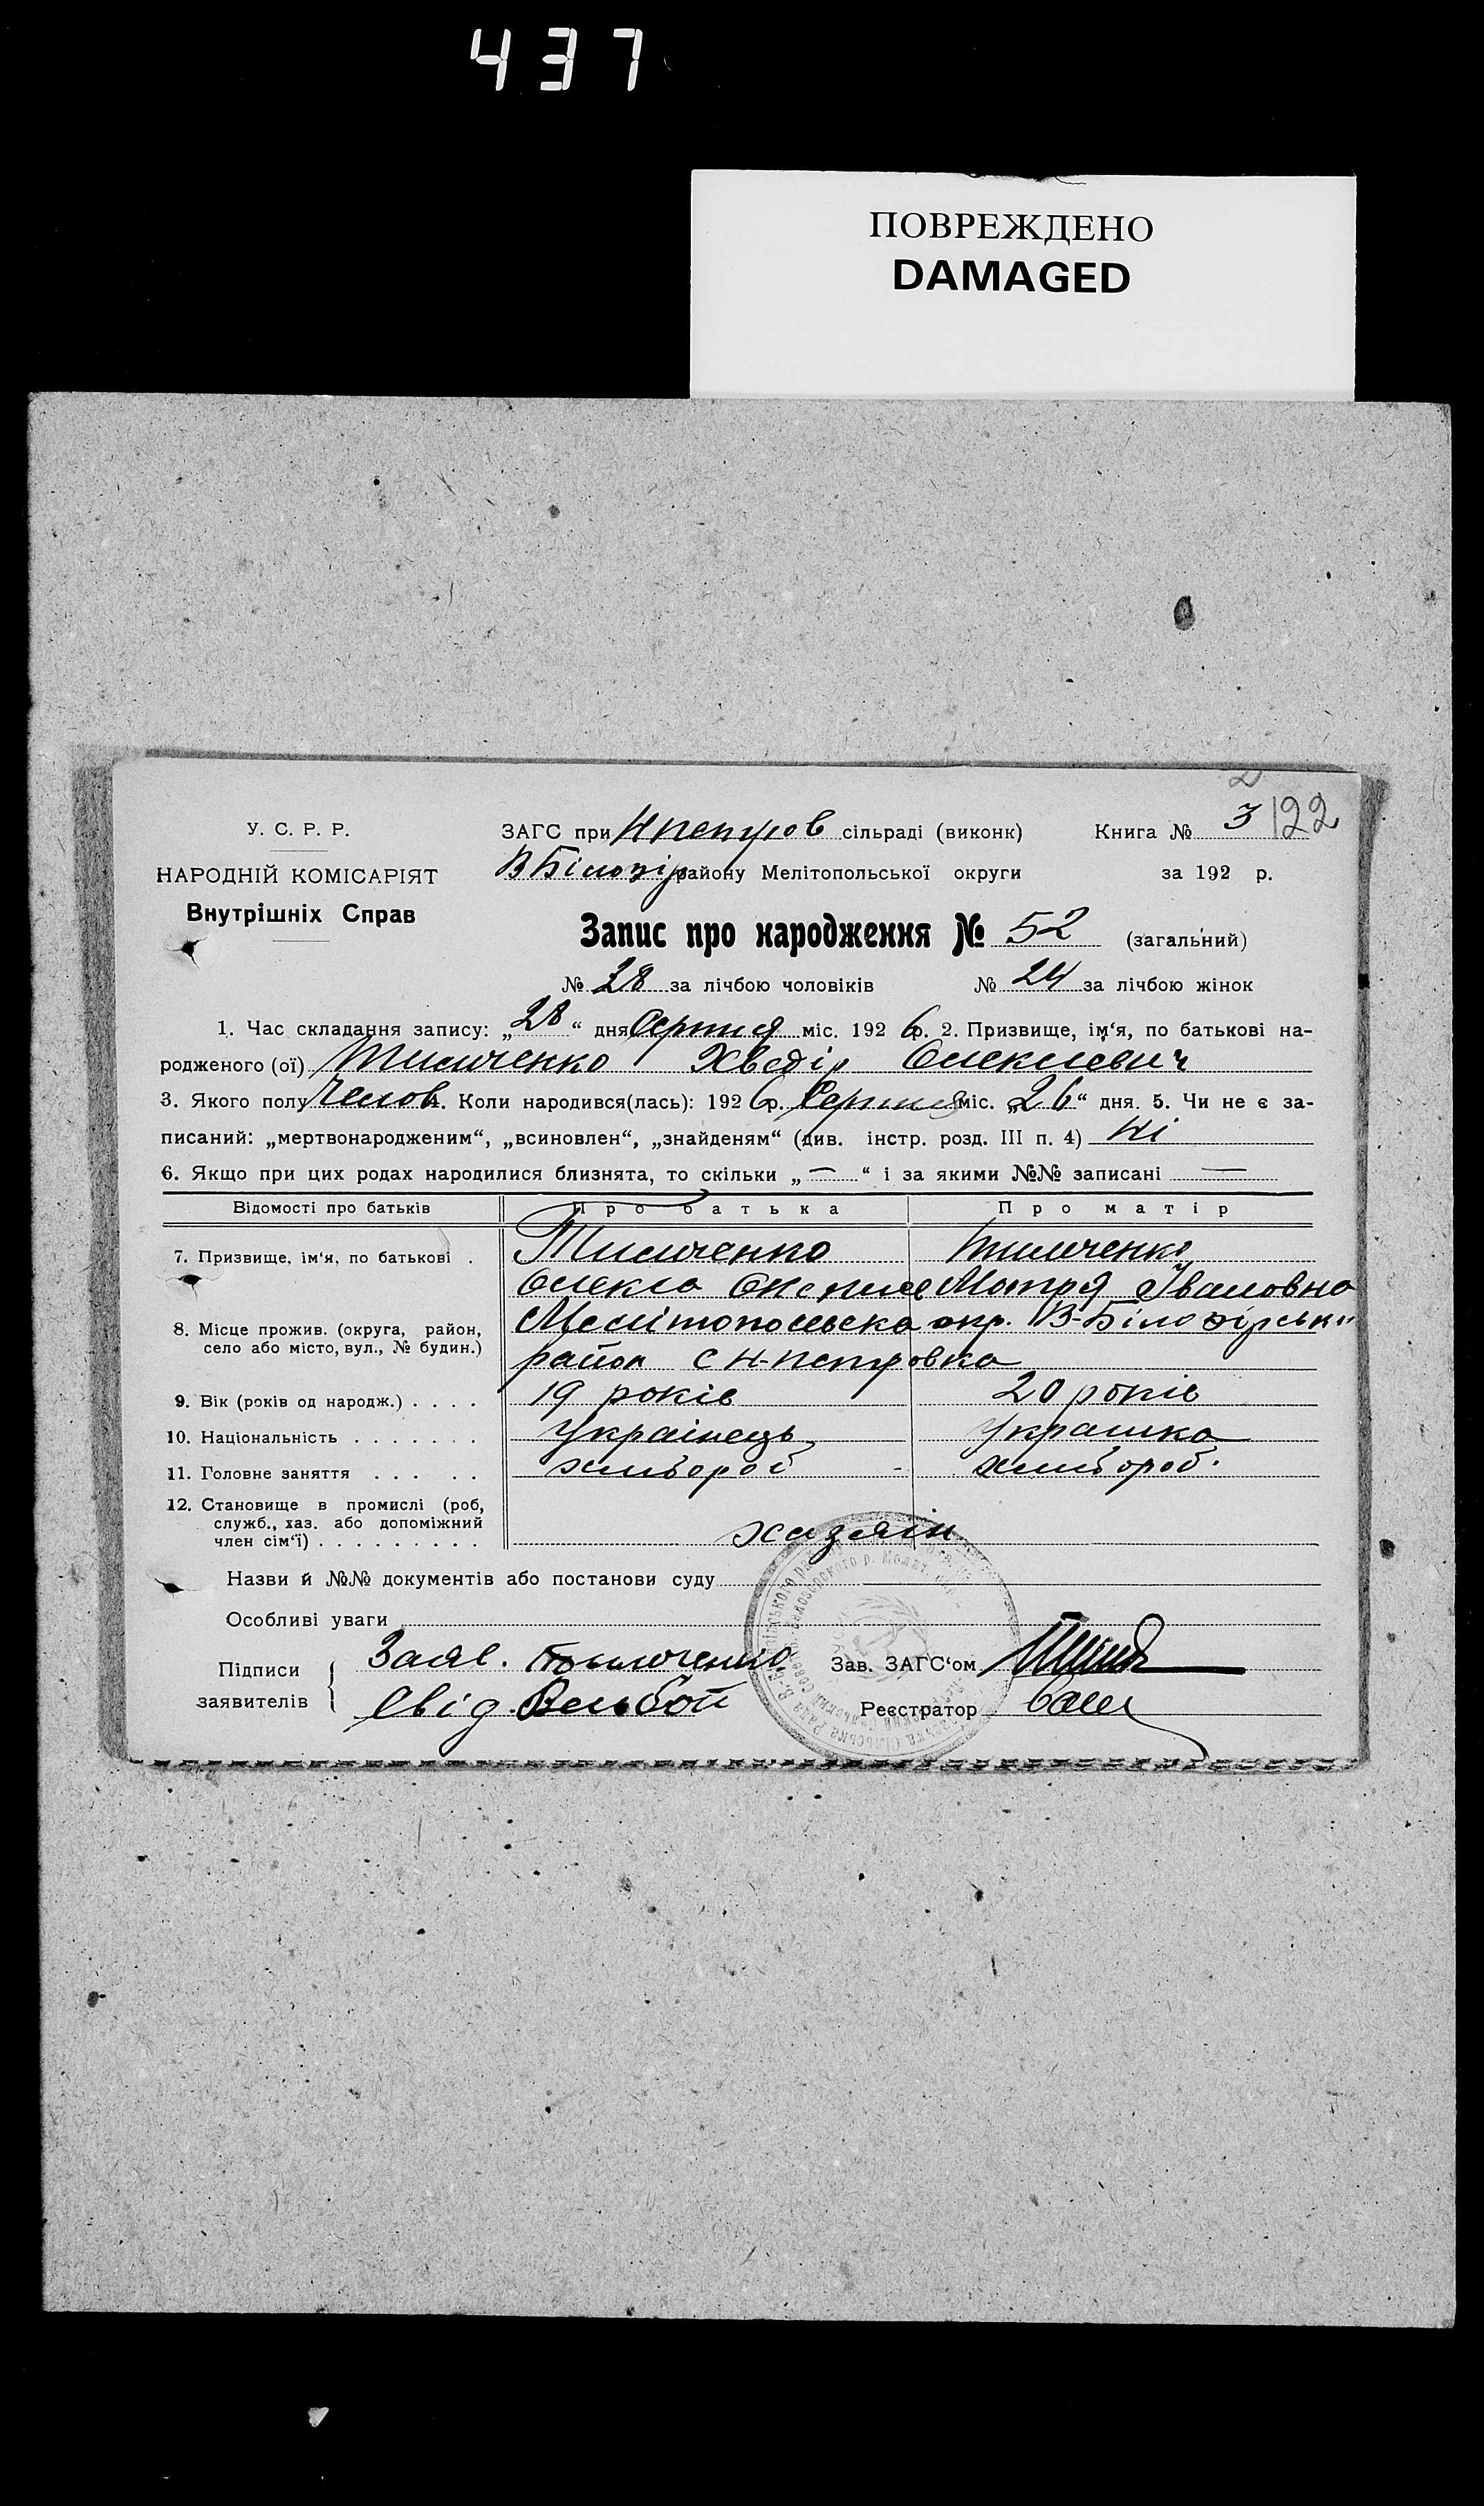 437
ПОВРЕЖДЕНО
DAMAGED
122
У. С. Р. Р.
НАРОДНІЙ КОМІСАРІЯТ
Внутрішніх Справ
ЗАГС при Нпетров сільраді (виконк) Книга № 3
ВБілозір району Мелітопольської округи за 192 р.
Запис про народження № 52 (загальний)
№ 28 за лічбою чоловіків № 24 за лічбою жінок
1. Час складання запису: „28“ дня Серпня міс. 1926 р. 2. Призвище, ім‘я, по батькові на-
родженого (ої) Тимченко Хведір Олексієвич
3. Якого полу Челов 4. Коли народився(лась): 1926 р. Серпня міс. „26“ дня. 5. Чи не є за-
писаний: „мертвонародженим“, „всиновлен“, „знайденям“ (див. інстр. розд. III п. 4) Ні
6. Якщо при цих родах народилися близнята, то скільки „—“ і за якими №№ записані —
Відомості про батьків Про батька Про матір
7. Призвище, ім‘я, по батькові . Тимченко Тимченко
Олекса Мотря Івановна
8. Місце прожив. (округа, район, село або місто, вул., № будин.) Мелітопольска окр. В-Білозірськи
район с Н-петровка
9. Вік (років од народж.) . . . . 19 років 20 років
10. Національність . . . . . . . Українець Украінка
11. Головне заняття . . . . . хлібороб хлібороб.
12. Становище в промислі (роб, служб., хаз. або допоміжний член сім‘ї) . . . . . . . . . хазяін
Назви й №№ документів або постанови суду
Особливі уваги
Підписи заявителів Заяв. Тимченко Зав. ЗАГС‘ом
Свід. Реєстратор